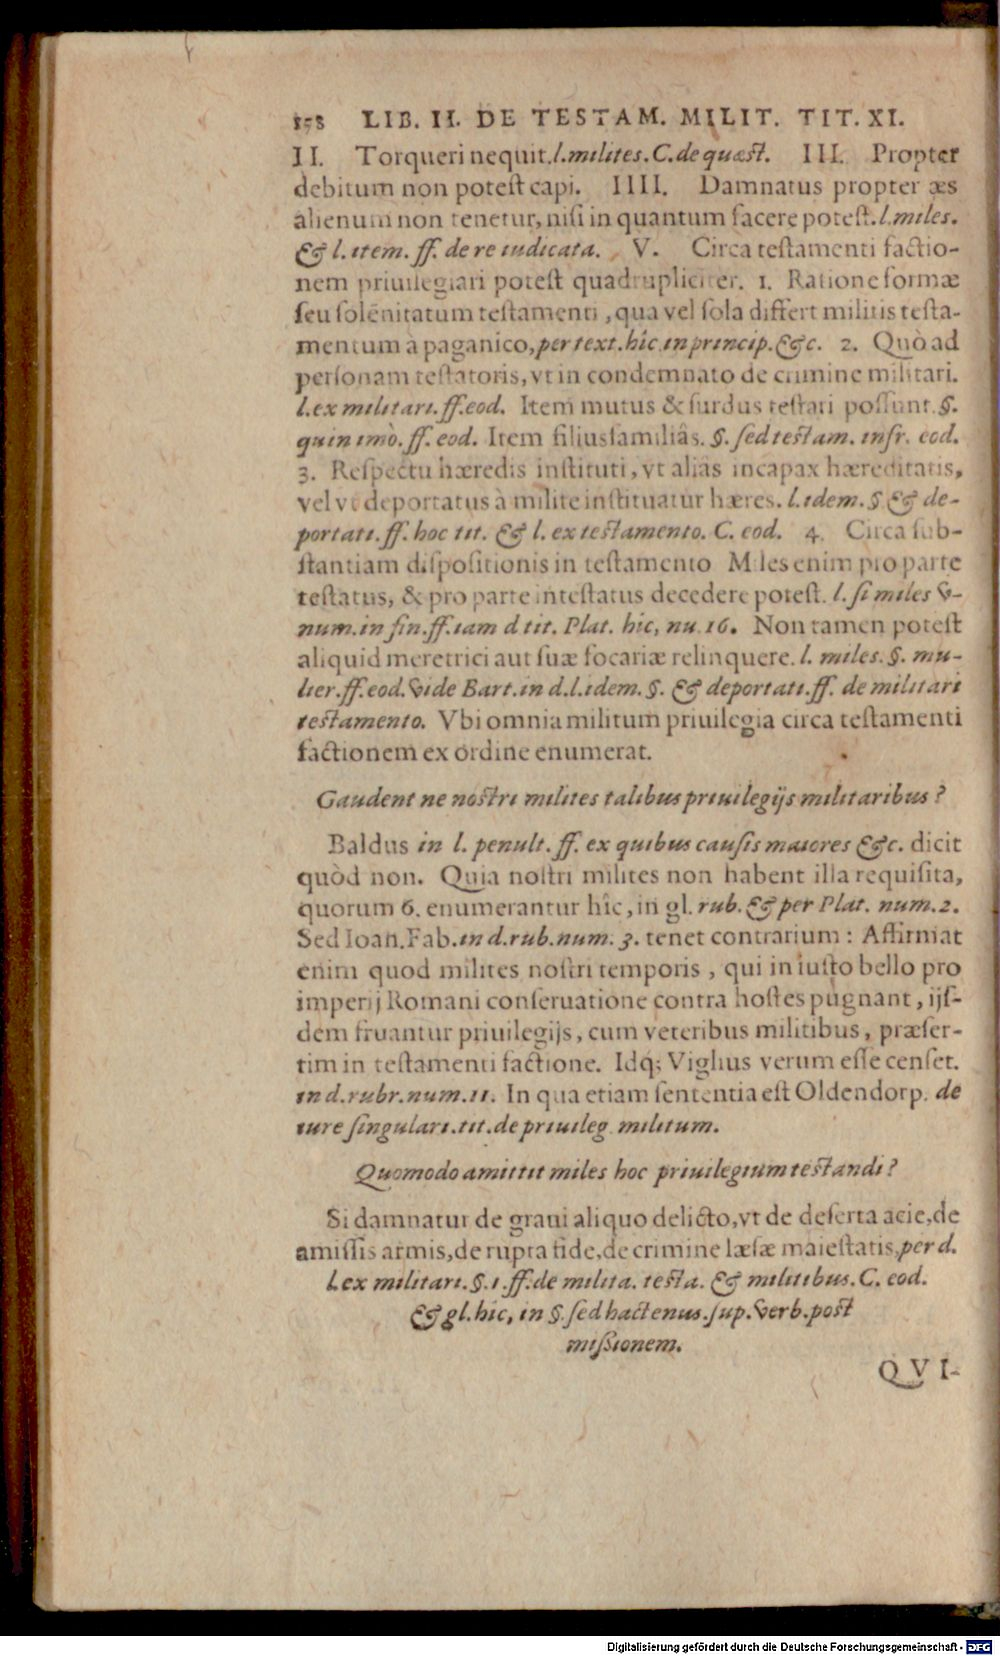 158 LIB. II. DE TESTAM. MILIT. TIT. XI.
II. Torqueri nequit. l. milites. C. de quæst. III. Propter
debitum non potest capi. IIII. Damnatus propter æs
alienum non tenetur, nisi in quantum facere potest. l. miles.
& l. item. ff. de re iudicata. V. Circa testamenti factio-
nem priuilegiari potest quadrupliciter. 1. Ratione formæ
seu solēnitatum testamenti, qua vel sola differt militis testa-
mentum à paganico, per text. hîc in princip. &c. 2. Quò ad
personam testatoris, vt in condemnato de crimine militari.
l. ex militari. ff. eod. Item mutus & surdus testari possunt. §.
quin imò. ff. eod. Item filiusfamiliâs. §. sed testam. infr. eod.
3. Respectu hæredis instituti, vt aliâs incapax hæreditatis,
vel vt deportatus à milite instituatur hæres. l. idem. § & de-
portati. ff. hoc tit. & l. ex testamento. C. eod. 4. Circa sub-
stantiam dispositionis in testamento Miles enim pro parte
testatus, & pro parte intestatus decedere potest. l. si miles v-
num. in fin. ff. iam d tit. Plat. hîc, nu. 16. Non tamen potest
aliquid meretrici aut suæ focariæ relinquere. l. miles. §. mu-
lier. ff. eod. vide Bart. in d. l. idem. §. & deportati. ff. de militari
testamento. Vbi omnia militum priuilegia circa testamenti
factionem ex ordine enumerat.
Gaudent ne nostri milites talibus priuilegijs militaribus?
Baldus in l. penult. ff. ex quibus causis maiores &c. dicit
quòd non. Quia nostri milites non habent illa requisita,
quorum 6. enumerantur hîc, in gl. rub. & per Plat. num. 2.
Sed Ioan. Fab. in d. rub. num. 3. tenet contrarium: Affirmat
enim quod milites nostri temporis, qui in iusto bello pro
imperij Romani conseruatione contra hostes pugnant, ijs-
dem fruantur priuilegijs, cum veteribus militibus, præser-
tim in testamenti factione. Idq; Viglius verum esse censet.
in d. rubr. num. 11. In qua etiam sententia est Oldendorp. de
iure singulari. tit. de priuileg. militum.
Quomodo amittit miles hoc priuilegium testandi?
Si damnatur de graui aliquo delicto, vt de deserta acie, de
amissis armis, de rupta fide, de crimine læsæ maiestatis, per d.
l. ex militari. §. 1. ff. de milita. testa. & militibus. C. eod.
& gl. hîc, in §. sed hactenus. sup. verb. post
missionem.
QVI-
Digitalisierung gefördert durch die Deutsche Forschungsgemeinschaft - DFG